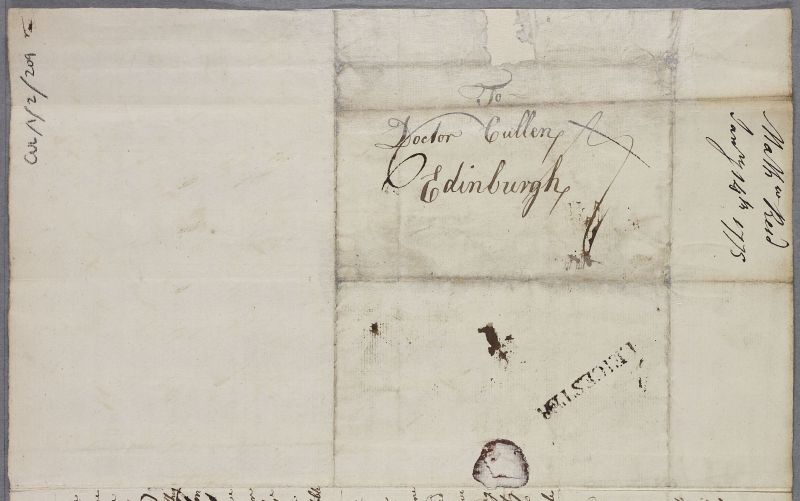 To
Doctor Cullen
Edinburgh
Matth w Reid
Jany 14th 1775
LEICESTER
Cul/1/2/209